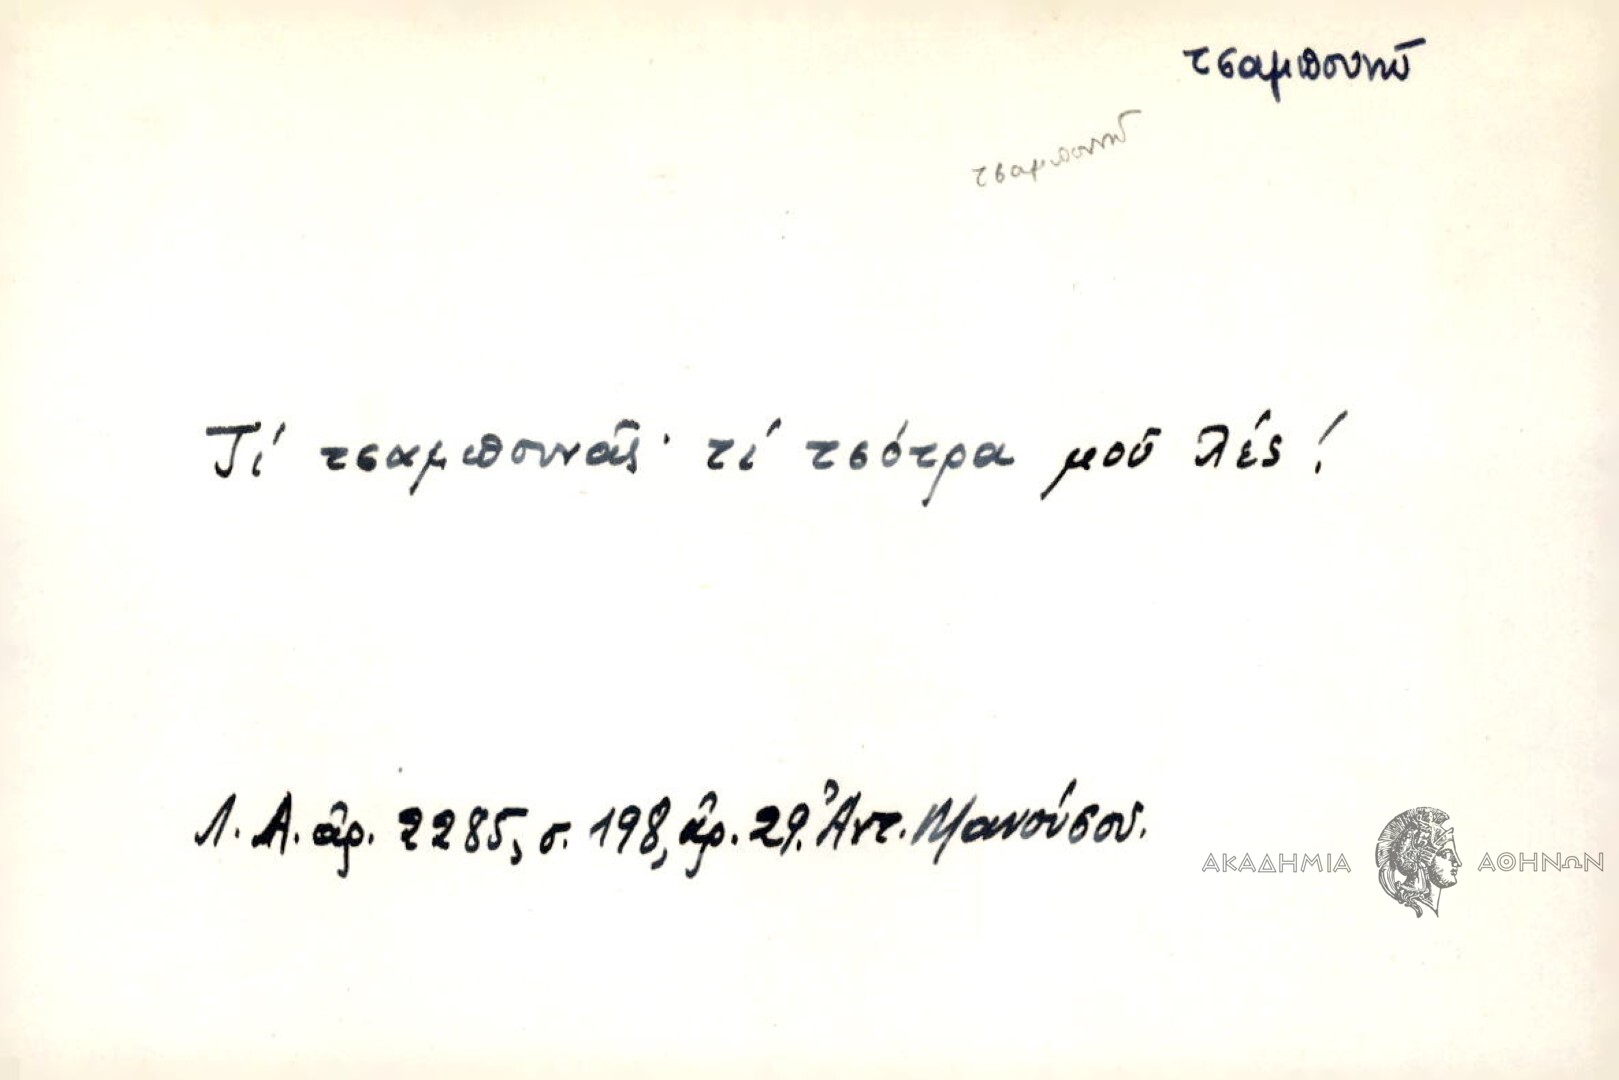 τσαμπουνῶ
τσαμπουνῶ
Τί τσαμπουνᾶς· τί τσότρα μοῦ λές!
Λ. Α. ἀρ. 2285, σ. 198, ἀρ. 29. Ἀντ. Μανούσου.
ΑΚΑΔΗΜΙΑ ΑΘΗΝΩΝ